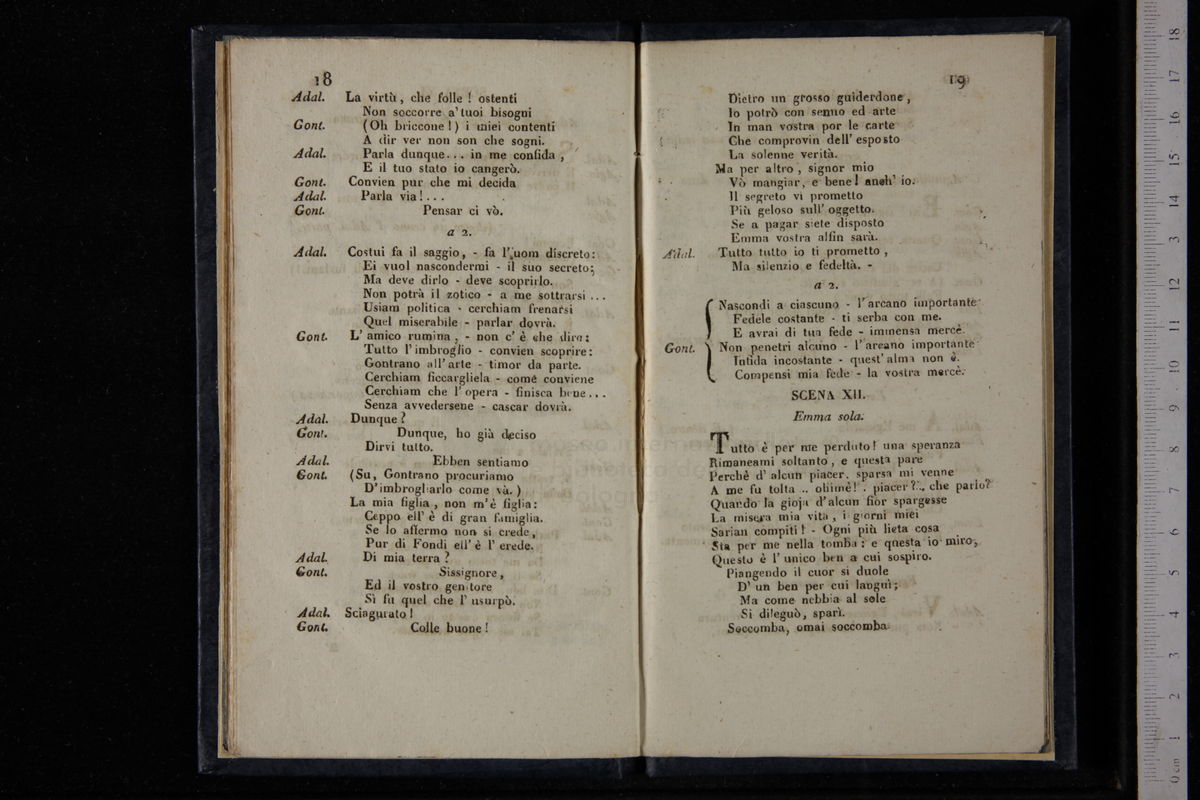 18
Adal. La virtù, che folle! ostenti
Non soccorre a' tuoi bisogni
Gont. (Oh briccone!) i miei contenti
A dir ver non son che sogni.
Adal. Parla dunque... in me confida,
E il tuo stato io cangerò.
Gont. Convien pur che mi decida
Adal. Parla via!...
Gont. Pensar ci vò.
a 2.
Adal. Costui fa il saggio, - fa l'uom discreto:
Ei vuol nascondermi - il suo secreto;
Ma deve dirlo - deve scoprirlo.
Non potrà il zotico - a me sottrarsi...
Usiam politica - cerchiam frenarsi
Quel miserabile - parlar dovrà.
Gont. L'amico rumina, - non c'è che dire:
Tutto l'imbroglio - convien scoprire:
Gontrano all'arte - timor da parte.
Cerchiam ficcargliela - come conviene
Cerchiam che l'opera - finisca bene...
Senza avvedersene - cascar dovrà.
Adal. Dunque?
Gont. Dunque, ho già deciso
Dirvi tutto.
Adal. Ebben sentiamo
Gont. (Su, Gontrano procuriamo
D'imbrogliarlo come và.)
La mia figlia, non m'è figlia:
Ceppo ell'è di gran famiglia.
Se lo affermo non si crede,
Pur di Fondi ell'è l'erede.
Adal. Di mia terra?
Gont. Sissignore,
Ed il vostro genitore
Sì fu quel che l'usurpò.
Adal. Sciagurato!
Gont. Colle buone!
19
Dietro un grosso guiderdone,
Io potrò con senno ed arte
In man vostra por le carte
Che comprovin dell'esposto
La solenne verità.
Ma per altro, signor mio
Vò mangiar, e bene! anch' io.
Il segreto vi prometto
Più geloso sull'oggetto.
Se a pagar siete disposto
Emma vostra alfin sarà.
Adal. Tutto tutto io ti prometto,
Ma silenzio e fedeltà. -
a 2.
Nascondi a ciascuno - l'arcano importante
Fedele costante - ti serba con me.
E avrai di tua fede - immensa mercè.
Gont. Non penetri alcuno - l'arcano importante
Infida incostante - quest'alma non è.
Compensi mia fede - la vostra mercè.
SCENA XII.
Emma sola.
Tutto è per me perduto! una speranza
Rimaneami soltanto, e questa pare
Perchè d'alcun piacer. sparsa mi venne
A me fu tolta .. ohimè! . piacer?... che parlo?
Quando la gioja d'alcun fior spargesse
La misera mia vita, i giorni miei
Sarian compiti! - Ogni più lieta cosa
Sta per me nella tomba: e questa io miro,
Questo è l'unico ben a cui sospiro.
Piangendo il cuor si duole
D'un ben per cui languì;
Ma come nebbia al sole
Si dileguò, sparì.
Soccomba, omai soccomba